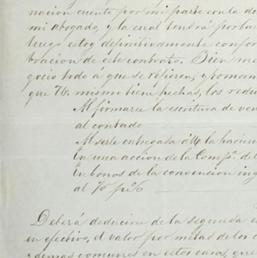 nación cuento por mi parte con la do
mi abogado, y la cual tendrá probab
luego estoy definitivamente confor
bración de este contrato. Bien me
gocio todo a que se refieren, y toman
que V. mismo bien fechas, los redu
Al firmarse la escritura de ven
al contado
Al serle entregada á la hacien
en una acción de la Compª. del
en bonos de la convención ing
al 70 p%
Deberá deducirse de la segunda e
en efectivo, el valor por metas de los c
y demas comunes en estos casos, que